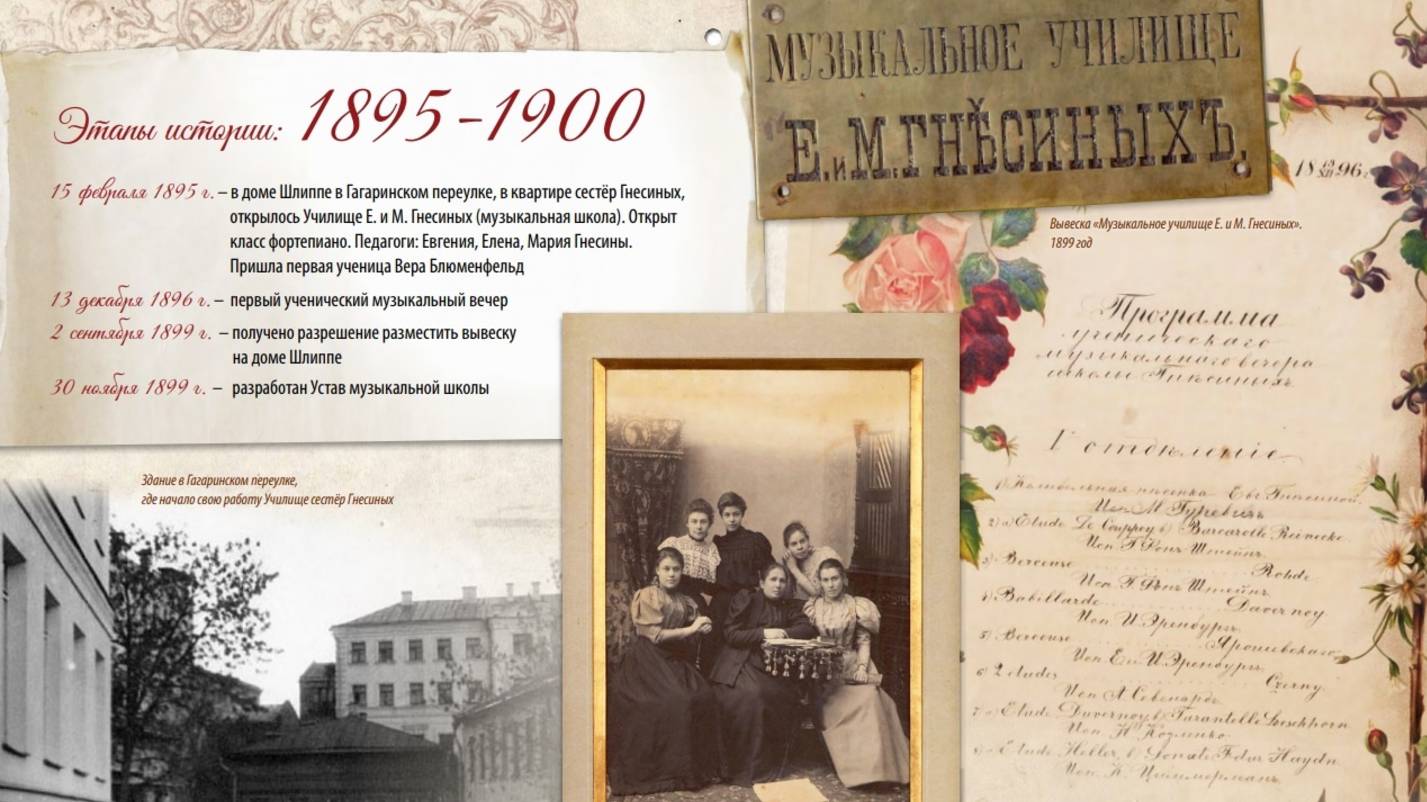 Этапы истории: 1895-1900
15 февраля 1895 г. – в доме Шлиппе в Гагаринском переулке, в квартире сестёр Гнесиных,
открылось Училище Е. и М. Гнесиных (музыкальная школа). Открыт
класс фортепиано. Педагоги: Евгения, Елена, Мария Гнесины.
Пришла первая ученица Вера Блюменфельд
13 декабря 1896 г. – первый ученический музыкальный вечер
2 сентября 1899 г. – получено разрешение разместить вывеску
на доме Шлиппе
30 ноября 1899 г. – разработан Устав музыкальной школы
Здание в Гагаринском переулке,
где начало свою работу Училище сестёр Гнесиных
МУЗЫКАЛЬНОЕ УЧИЛИЩЕ
Е. и М. ГНѢСИНЫХЪ.
Вывеска «Музыкальное училище Е. и М. Гнесиных».
1899 год
18 96 г.
Программа
ученическаго
музыкальнаго вечера
школы Гнѣсиныхъ
I отдѣленіе.
1) Колыбельная песенка Евг. Гнѣсиной.
Исп. М. Гуревичъ
2) a) Etude Le Couppey b) Barcarolle Reinecke.
Исп. Г. Фонъ Штейнъ.
3) Berceuse Rohde.
Исп. Г. Фонъ Штейнъ.
4) Babillarde Duvernoy.
Исп. И. Эренбургъ.
5) Berceuse Ярошевскаго
Исп. Ел. И. Эренбургъ
6) 2 etudes Czerny.
Исп. А.
7) Etude Duvernoy b) Tarantelle Loeschhorn
Исп. Н. Козленко
8) Etude Heller b) Sonate F dur Haydn
Исп. К. Циммерманъ